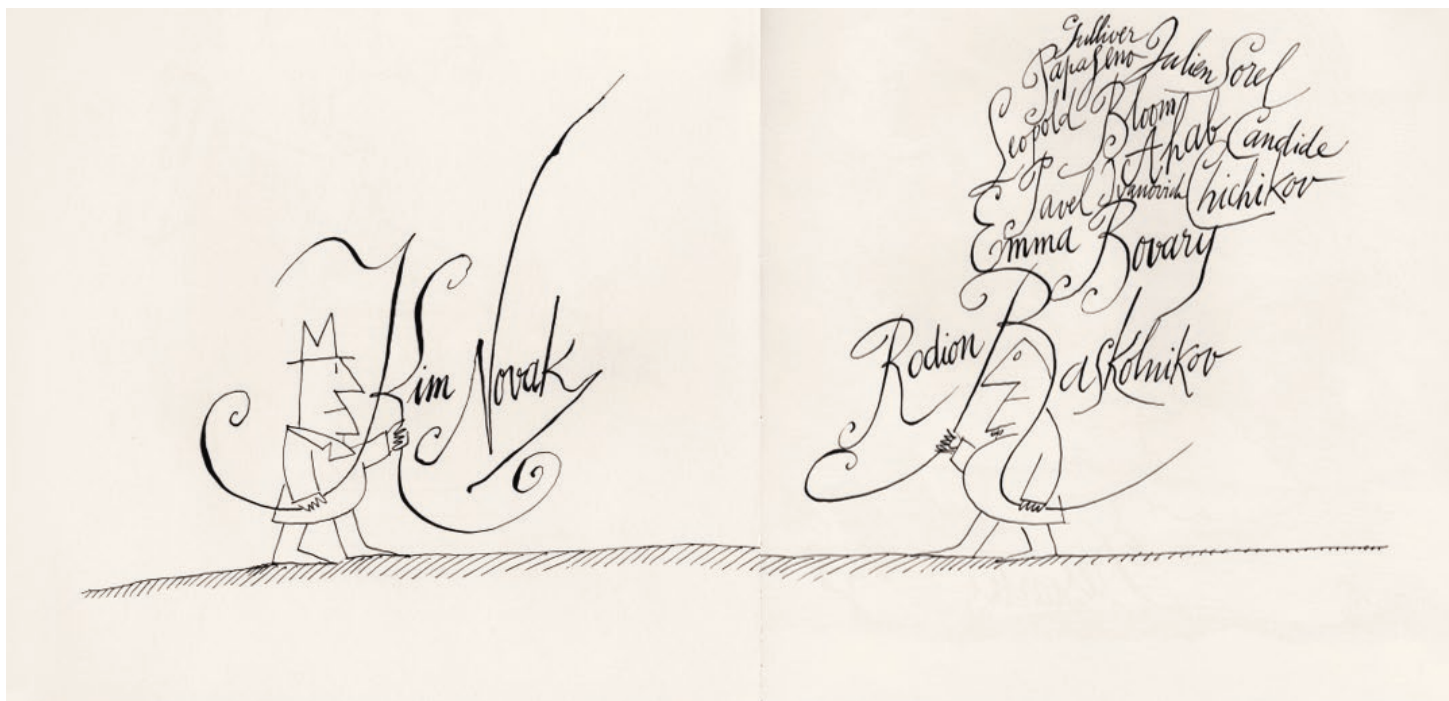 Kim Novak
Gulliver
Papageno Julien Sorel
Leopold Bloom
Ahab Candide
Pavel Ivanovich Chichikov
Emma Bovary
Rodion Raskolnikov